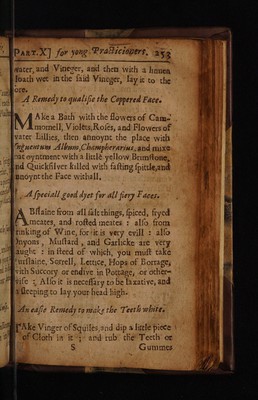 PART.X] for yong Practicioners. 253
water, and Vineger, and then with a linnen
cloath wet in the said Vineger, lay it to the
ore.
A Remedy to qualifie the Coppered Face.
MAke a Bath with the flowers of Cam-
momell, Violets, Roses, and Flowers of
water Lillies, then annoynt the place with
Vnguentum Album, Champherarius, and mixe
oyntment with a little yellow Brimstone,
nd Quicksilver killed with fasting spittle, and
nnoynt the Face withall.
A speciall good dyet for all fiery Faces.
ABstaine from all salt things, spiced, fryed
meates, and rosted meates : also from
rinking of Wine, for it is very evill : also
Onyons, Mustard, and Garlicke are very
aught : in steed of which, you must take
urslaine, Sorrell, Lettice, Hops of Borrage,
vith Succory or endive in Pottage, or other-
vise ; Also it is necessary to be laxative, and
a sleeping to lay your head high.
An easie Remedy to make the Teeth white.
TAke Vinger of Squiles, and dip a little piece
of Cloth in it ; and rub the Teeth or
S Gummes